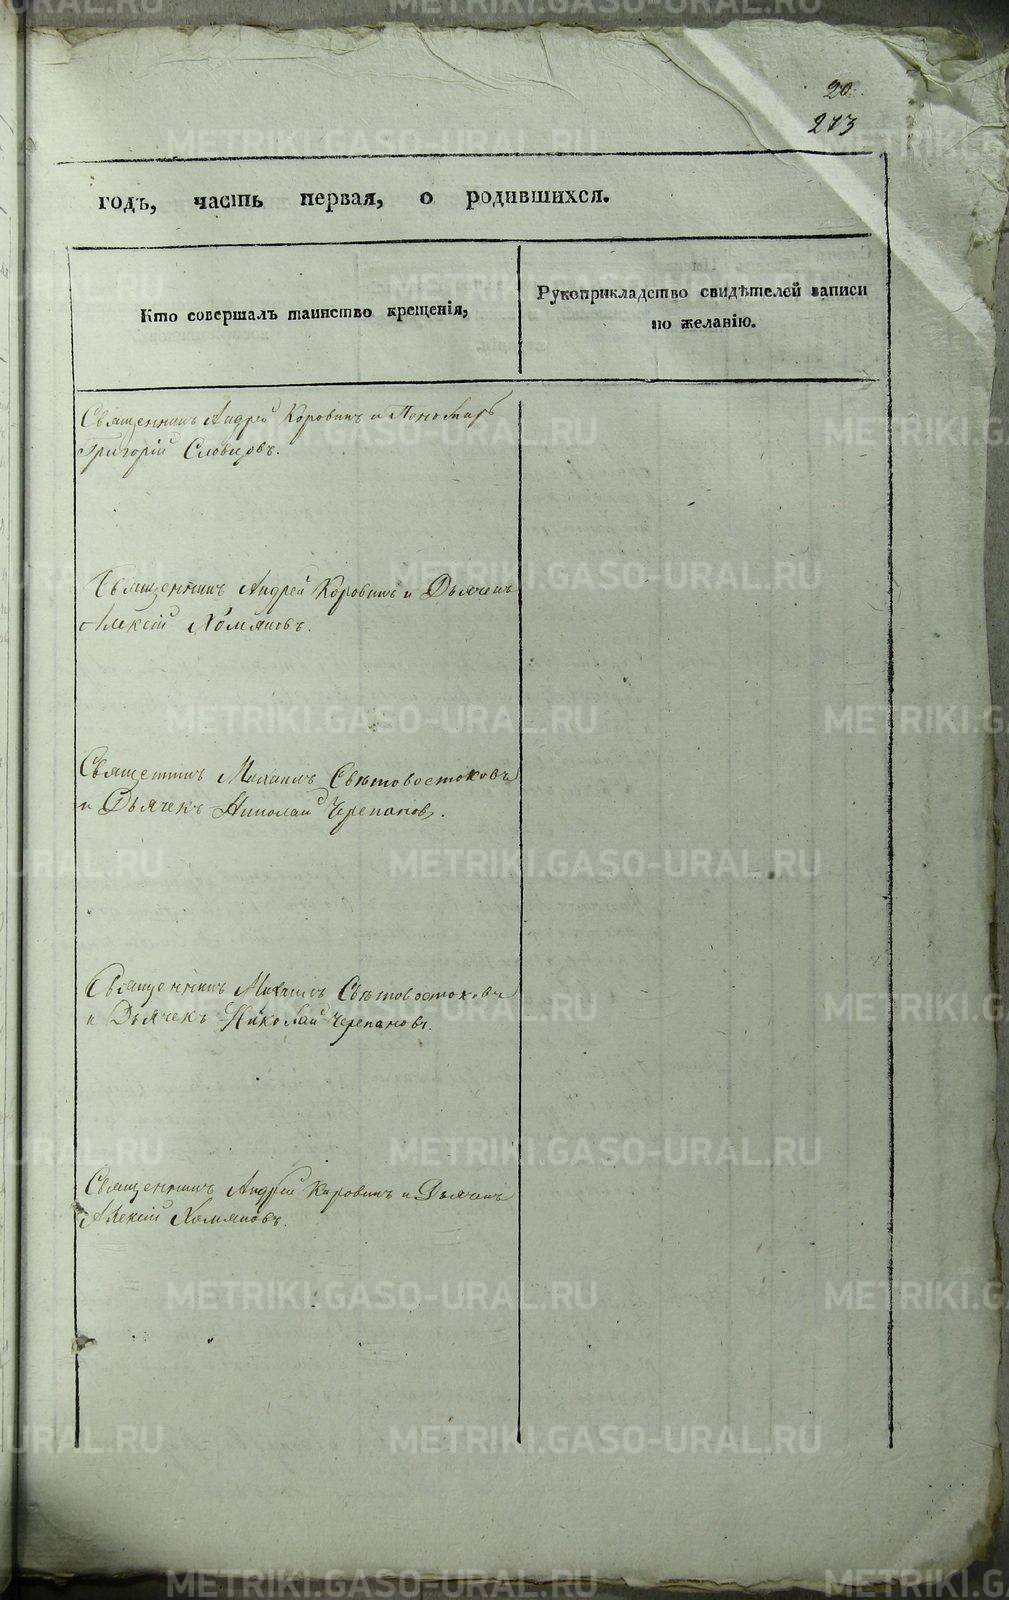 20.
273
годъ, часть первая, о родившихся.
Кто совершалъ таинство крещенія,
Рукоприкладство свидѣтелей записи
по желанію.
Священникъ Андрей Коровинъ и Пономарь
Григорій Словцовъ.
Священникъ Андрей Коровинъ и Дьячекъ
Алексій Хомяковъ.
Священникъ Михаилъ Свѣтовостоковъ
и Дьячекъ Николай Черепановъ.
Священникъ Михаилъ Свѣтовостоковъ
и Дьячекъ Николай Черепановъ.
Священникъ Андрей Коровинъ и Дьячекъ
Алексій Хомяковъ.
METRIKI.GASO-URAL.RU